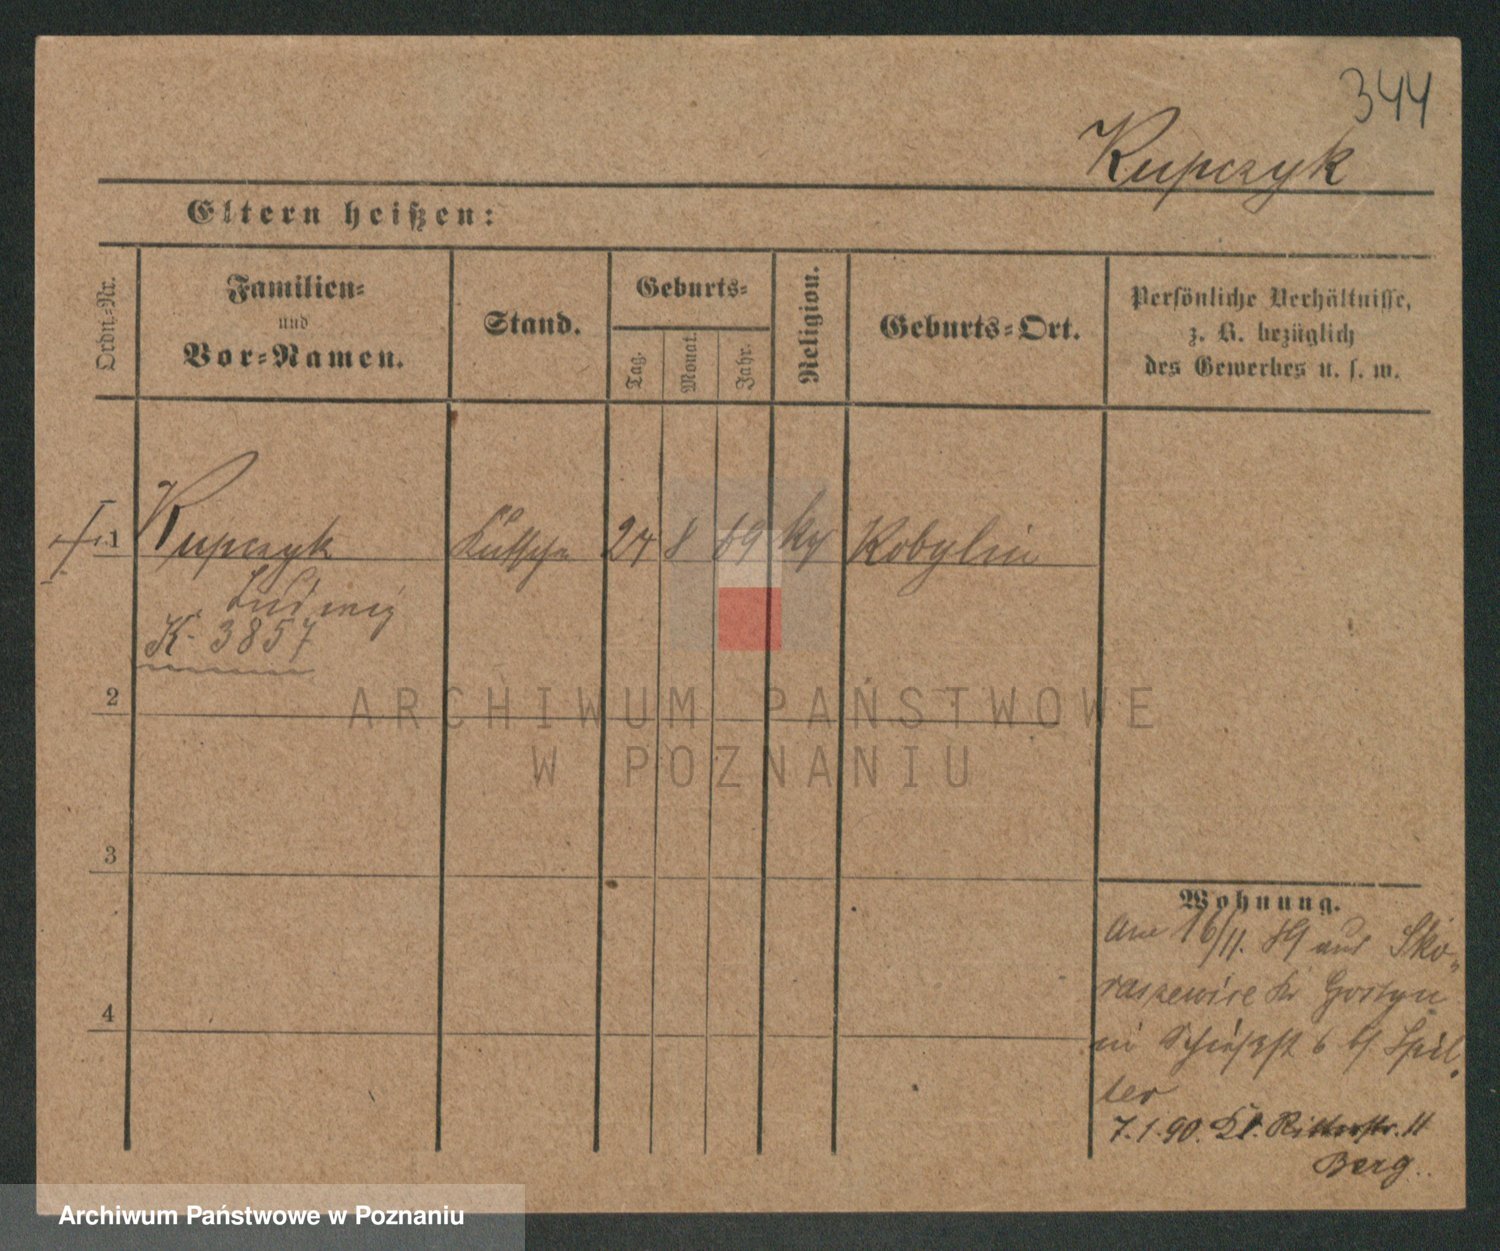 344
Kupczyk
Eltern heißen:
Ordn.-Nr.
Familien-
und
Vor-Namen.
Stand.
Geburts-
Tag.
Monat.
Jahr.
Religion.
Geburts-Ort.
Persönliche Verhältnisse,
z. B. bezüglich
des Gewerbes u. s. w.
1 Kupczyk 24 8 69 Kobylin
Ludwig
K. 3857
2
3
4
Wohnung.
Am 16/11. 89 aus Sko-
raszewice Kr Gostyn
in 6 b/
ler
7.1.90. Kl. Ritterstr. 11
Berg.
ARCHIWUM PAŃSTWOWE
W POZNANIU
Archiwum Państwowe w Poznaniu